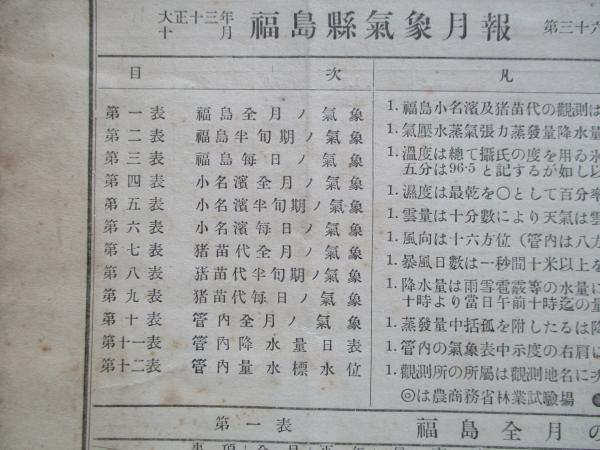 大正十三年
十月
福島縣氣象月報
第三十六
目次
第一表 福島全月ノ氣象
第二表 福島半旬期ノ氣象
第三表 福島每日ノ氣象
第四表 小名濱全月ノ氣象
第五表 小名濱半旬期ノ氣象
第六表 小名濱每日ノ氣象
第七表 猪苗代全月ノ氣象
第八表 猪苗代半旬期ノ氣象
第九表 猪苗代每日ノ氣象
第十表 管內全月ノ氣象
第十一表 管內降水量日表
第十二表 管內量水標水位
凡
1. 福島小名濱及猪苗代の觀測は
1. 氣壓水蒸氣張力蒸發量降水量
1. 溫度は總て攝氏の度を用る氷
五分は96·5と記するが如し以
1. 濕度は最乾を〇として百分率
1. 雲量は十分數により天氣は雲
1. 風向は十六方位（管內は八方
1. 暴風日數は一秒間十米以上を
1. 降水量は雨雪雹霰等の水量に
十時より當日午前十時迄の量
1. 蒸發量中括孤を附したるは降
1. 管內の氣象表中示度の右肩に
1. 觀測所の所屬は觀測地名に
◎は農商務省林業試驗場
第一表
福島全月の